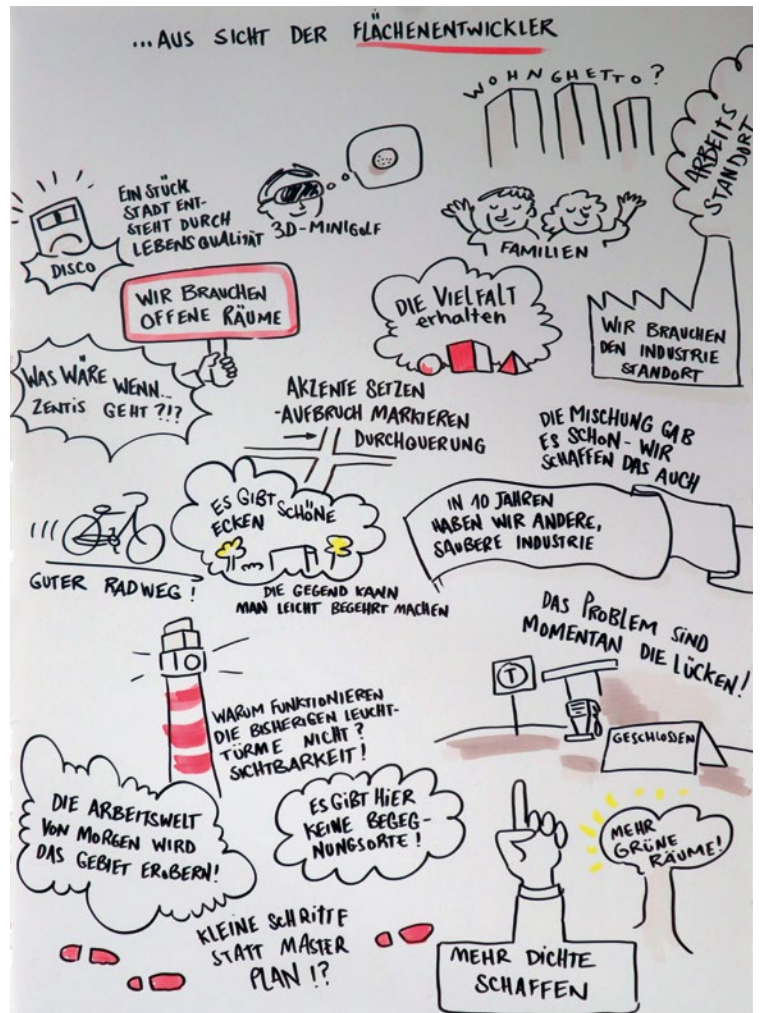 ...AUS SICHT DER FLÄCHENENTWICKLER
WOHNGHETTO?
ARBEITS
STANDORT
EIN STÜCK
STADT ENT-
STEHT DURCH
LEBENSQUALITÄT
DISCO
3D-MINIGOLF
FAMILIEN
WIR BRAUCHEN
OFFENE RÄUME
DIE VIELFALT
erhalten
WIR BRAUCHEN
DEN INDUSTRIE
STANDORT
WAS WÄRE WENN...
ZENTIS GEHT ?!?
AKZENTE SETZEN
-AUFBRUCH MARKIEREN
DURCHQUERUNG
DIE MISCHUNG GAB
ES SCHON - WIR
SCHAFFEN DAS AUCH
ES GIBT SCHÖNE
ECKEN
IN 10 JAHREN
HABEN WIR ANDERE,
SAUBERE INDUSTRIE
GUTER RADWEG!
DIE GEGEND KANN
MAN LEICHT BEGEHRT MACHEN
DAS PROBLEM SIND
MOMENTAN DIE LÜCKEN!
T
GESCHLOSSEN
WARUM FUNKTIONIEREN
DIE BISHERIGEN LEUCHT-
TÜRME NICHT?
SICHTBARKEIT!
DIE ARBEITSWELT
VON MORGEN WIRD
DAS GEBIET EROBERN!
ES GIBT HIER
KEINE BEGEG-
NUNGSORTE!
MEHR
GRÜNE
RÄUME!
KLEINE SCHRITTE
STATT MASTER
PLAN !?
MEHR DICHTE
SCHAFFEN